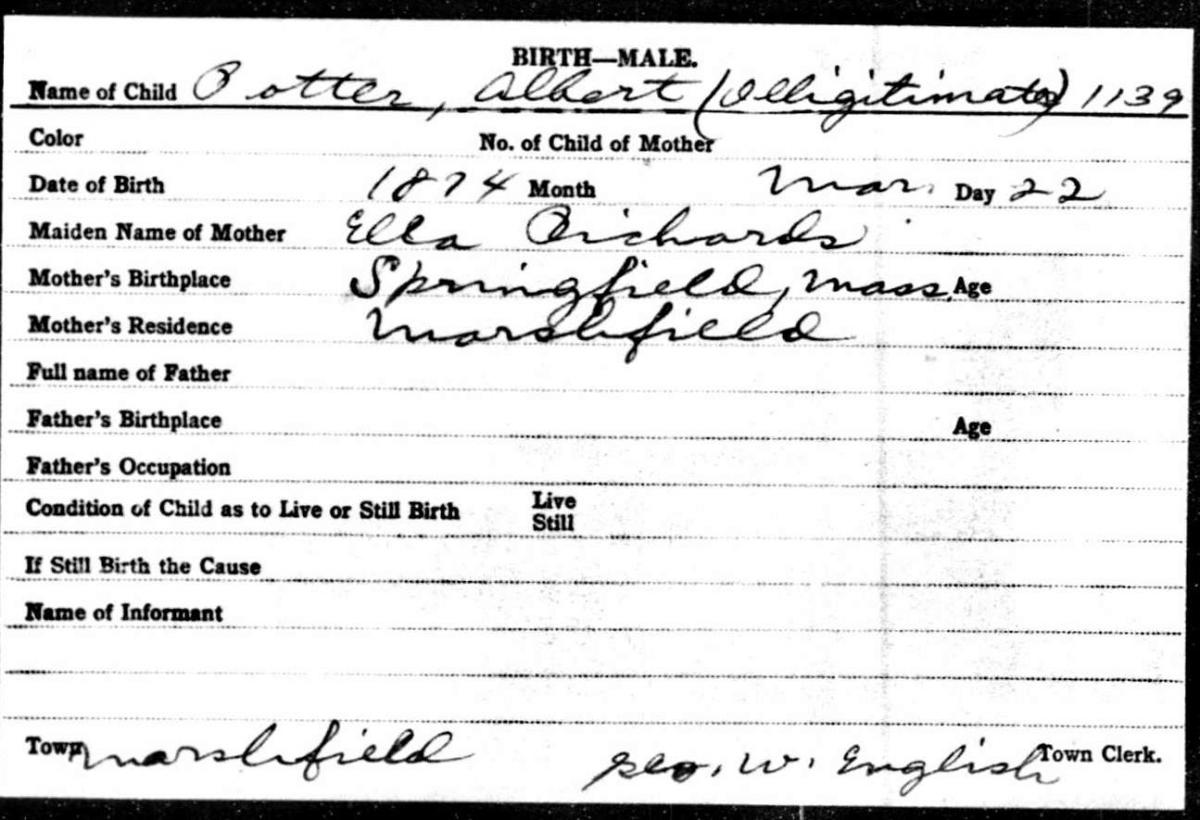 BIRTH—MALE.
Name of Child Potter, Albert (Illigitimate) 1139
Color No. of Child of Mother
Date of Birth 1874 Month Mar. Day 22
Maiden Name of Mother Ella Richards
Mother's Birthplace Springfield, Mass. Age
Mother's Residence Marshfield
Full name of Father
Father's Birthplace Age
Father's Occupation
Condition of Child as to Live or Still Birth Live
Still
If Still Birth the Cause
Name of Informant
Town Marshfield Geo. W. English Town Clerk.